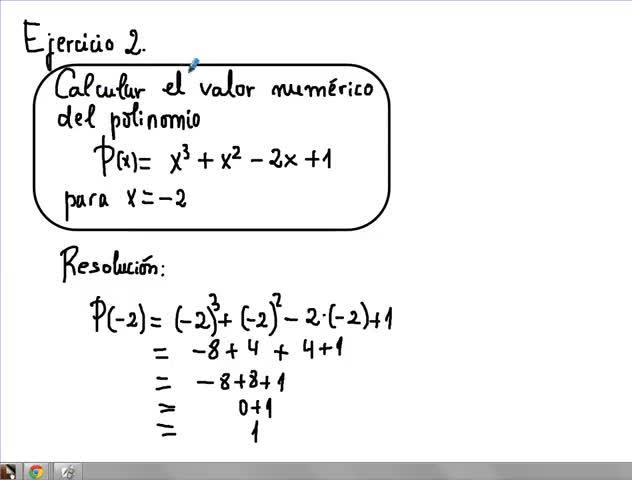 Ejercicio 2.
Calcular el valor numérico
del polinomio
P(x)= x³ + x² - 2x + 1
para x = -2
Resolución:
P(-2) = (-2)³ + (-2)² - 2·(-2) + 1
= -8 + 4 + 4 + 1
= -8+8+1
= 0+1
= 1